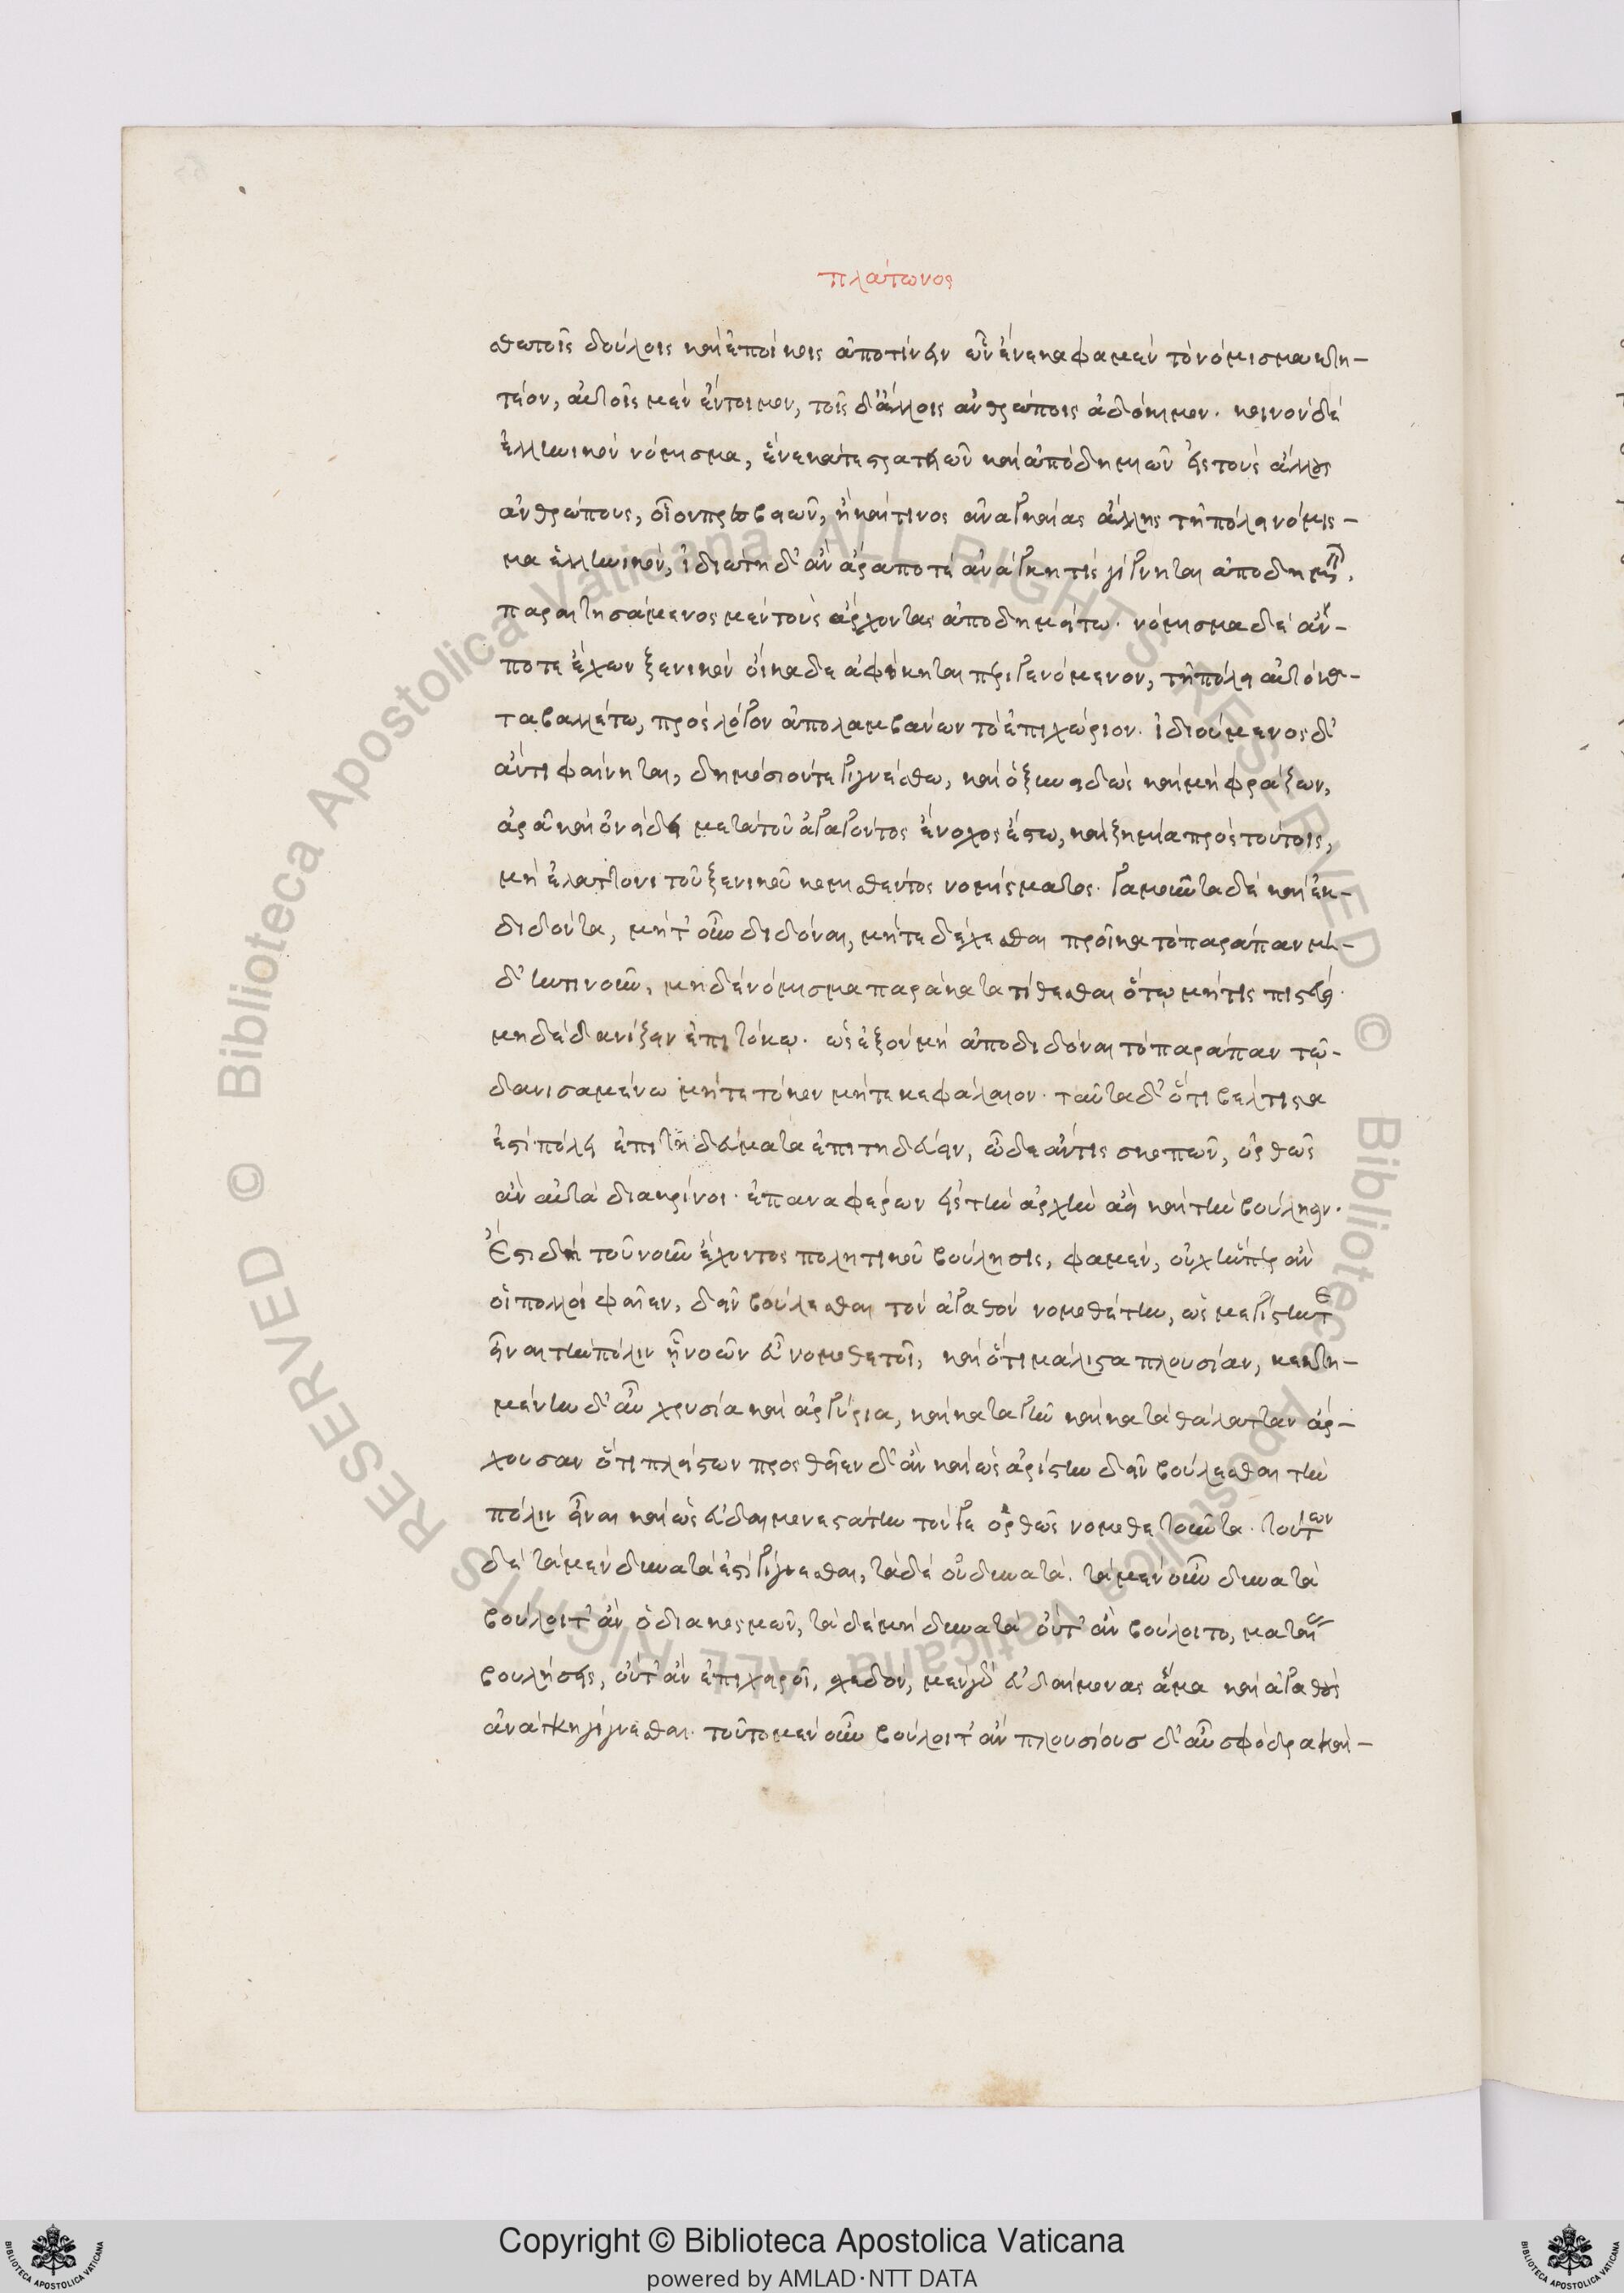 πλάτωνος
σθωτοῖς δούλοις καὶ ἐποίκοις ἀποτίνειν ὧν ἕνεκα φαμὲν τὸ νόμισμα κτη-
τέον, αὐτοῖς μὲν ἔντιμον, τοῖς δ' ἄλλοις ἀνθρώποις ἀδόκιμον. κοινὸν δὲ
ἑλληνικὸν νόμισμα, ἕνεκά τε στρατειῶν καὶ ἀποδημιῶν εἰς τοὺς ἄλλους
ἀνθρώπους, οἷον πρεσβειῶν, ἢ καί τινος ἀναγκαίας ἄλλης τῇ πόλει νόμισ-
μα ἑλληνικόν, ἰδιώτη δ' ἂν ἄρα ποτὲ ἀνάγκη τὶς γίγνηται ἀποδημεῖν,
παραιτησάμενος μὲν τοὺς ἄρχοντας ἀποδημείτω. νόμισμα δὲ ἄν-
ποτε ἔχων ξενικὸν οἴκαδε ἀφίκηται περιγενόμενον, τῇ πόλει αὐτὸ κα-
ταβαλλέτω, πρὸς λόγον ἀπολαμβάνων τὸ ἐπιχώριον. ἰδιούμενος δ'
ἄν τι φαίνηται, δημόσιόν τε γιγνέσθω, καὶ ὁ ξυνειδὼς καὶ μὴ φράζων,
ἀρᾷ καὶ ὀνείδει μετὰ τοῦ ἀγαγόντος ἔνοχος ἔστω, καὶ ζημία πρὸς τούτοις,
μὴ ἐλάττονι τοῦ ξενικοῦ κομισθέντος νομίσματος. γαμοῦντα δὲ καὶ ἐκ-
διδόντα, μήτ' οὖν διδόναι, μήτε δέχεσθαι προῖκα τὸ παράπαν μη-
δ' ἡντινοῦν, μηδὲ νόμισμα παρακατατίθεσθαι ὅτῳ μή τις πιστεύει.
μηδὲ δανίζειν ἐπὶ τόκῳ. ὡς ἐξὸν μὴ ἀποδιδόναι τὸ παράπαν τῷ-
δανισαμένω μήτε τόκον μήτε κεφάλαιον. ταῦτα δ' ὅτι βέλτιστα
ἐστὶ πόλει ἐπιτηδεύματα ἐπιτηδεύειν, ὧδε ἄν τις σκοπῶν, ὀρθῶς
ἂν αὐτὰ διακρίνοι. ἐπαναφέρων εἰς τὴν ἀρχὴν ἀεὶ καὶ τὴν βούλησιν.
Ἔστι δὴ τοῦ νοῦν ἔχοντος πολιτικοῦ βούλησις, φαμέν, οὐχ ἥνπερ ἂν
οἱ πολλοὶ φαῖεν, δεῖν βούλεσθαι τὸν ἀγαθὸν νομοθέτην, ὡς μεγίστην τε
εἶναι τὴν πόλιν ᾗ νοῶν εὖ νομοθετοῖ, καὶ ὅτι μάλιστα πλουσίαν, κεκτη-
μένην δ' αὖ χρυσία καὶ ἀργύρια, καὶ κατὰ γῆν καὶ κατὰ θάλατταν ἄρ-
χουσαν ὅτι πλείστων προσθεῖεν δ' ἂν καὶ ὡς ἀρίστην δεῖν βούλεσθαι τὴν
πόλιν εἶναι καὶ ὡς εὐδαιμονεστάτην τόν γε ὀρθῶς νομοθετοῦντα. τούτων
δὲ τὰ μὲν δυνατὰ ἐστὶ γίγνεσθαι, τὰ δὲ οὐ δυνατά. τὰ μὲν οὖν δυνατὰ
βούλοιτ' ἂν ὁ διακοσμῶν, τὰ δὲ μὴ δυνατὰ οὔτ' ἂν βούλοιτο, ματαίας
βουλήσεις, οὔτ' ἂν ἐπιχειροῖ, σχεδὸν, μὲν γὰρ εὐδαίμονας ἅμα καὶ ἀγαθοὺς
ἀνάγκη γίγνεσθαι. τοῦτο μὲν οὖν βούλοιτ' ἂν πλουσίους δ' αὖ σφόδρα καὶ-
Copyright © Biblioteca Apostolica Vaticana
powered by AMLAD·NTT DATA